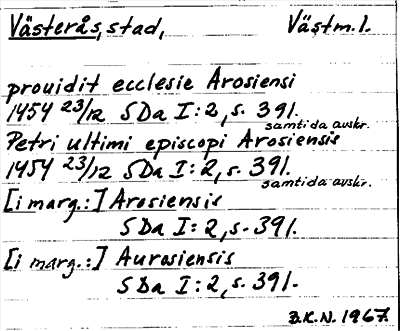 Västerås, stad, Västm. l.
prouidit ecclesie Arosiensi
1454 23/12 SDa I:2, s. 391.
samtida avskr.
Petri ultimi episcopi Arosiensis
1454 23/12 SDa I:2, s. 391.
samtida avskr.
[i marg.:] Arosiensis
SDa I:2, s. 391.
[i marg.:] Aurosiensis
SDa I:2, s. 391.
B.K.N. 1967.